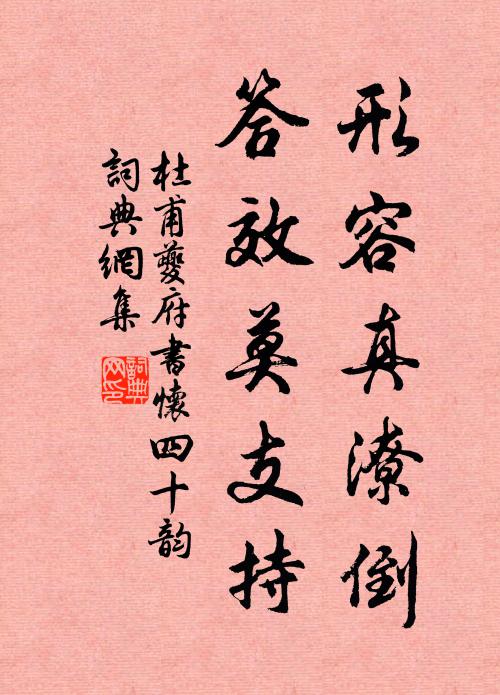 形容真潦倒
答效莫支持
杜甫夔府書懷四十韵
詞典網集
詞典网印